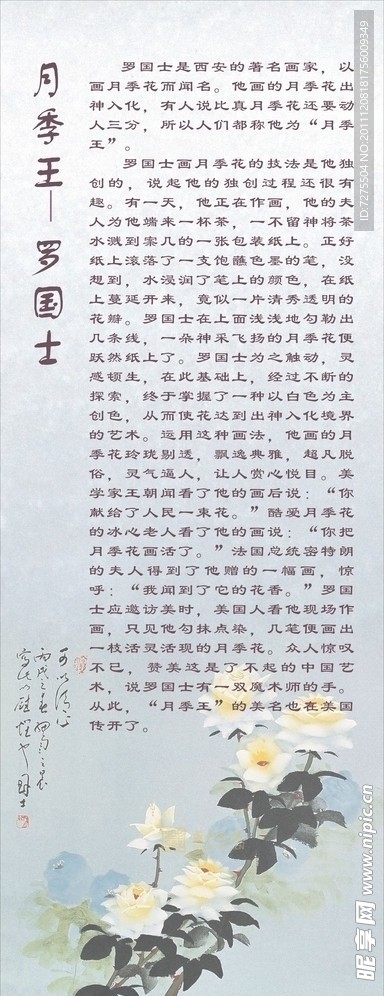 月季王—罗国士
罗国士是西安的著名画家，以
画月季花而闻名。他画的月季花出
神入化，有人说比真月季花还要动
人三分，所以人们都称他为“月季
王”。
罗国士画月季花的技法是他独
创的，说起他的独创过程还很有
趣。有一天，他正在作画，他的夫
人为他端来一杯茶，一不留神将茶
水溅到案几的一张包装纸上。正好
纸上滚落了一支饱蘸色墨的笔，没
想到，水浸润了笔上的颜色，在纸
上蔓延开来，竟似一片清秀透明的
花瓣。罗国士在上面浅浅地勾勒出
几条线，一朵神采飞扬的月季花便
跃然纸上了。罗国士为之触动，灵
感顿生，在此基础上，经过不断的
探索，终于掌握了一种以白色为主
创色，从而使花达到出神入化境界
的艺术。运用这种画法，他画的月
季花玲珑剔透，飘逸典雅，超凡脱
俗，灵气逼人，让人赏心悦目。美
学家王朝闻看了他的画后说：“你
献给了人民一束花。”酷爱月季花
的冰心老人看了他的画说：“你把
月季花画活了。”法国总统密特朗
的夫人得到了他赠的一幅画，惊
呼：“我闻到了它的花香。”罗国
士应邀访美时，美国人看他现场作
画，只见他勾抹点染，几笔便画出
一枝活灵活现的月季花。众人惊叹
不已，赞美这是了不起的中国艺
术，说罗国士有一双魔术师的手。
从此，“月季王”的美名也在美国
传开了。
ID:7275504 NO:20111208181756009349
昵享网 www.nipic.cn